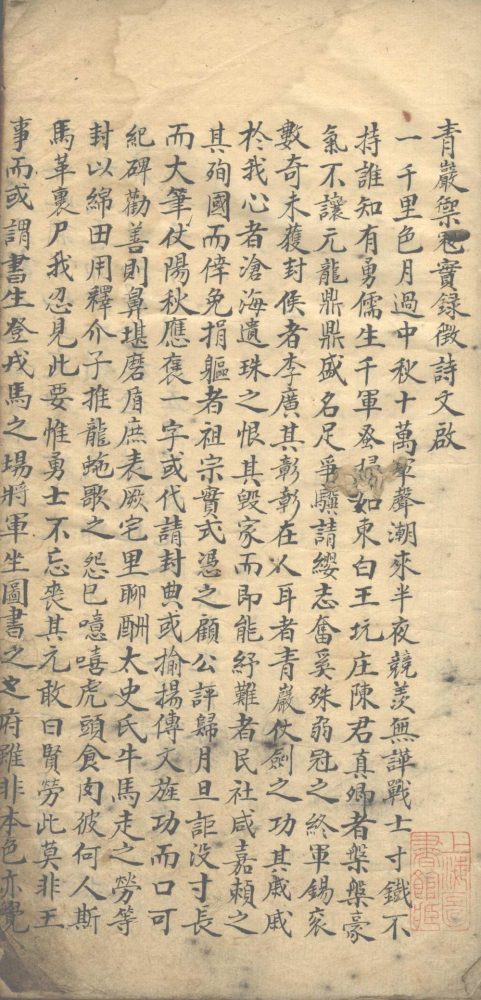 青巖禦寇實錄徵詩文啟
一千里色月過中秋十萬軍聲潮來半夜競羨無譁戰士寸鐵不
持誰知有勇儒生千軍如東白王坑庄陳君真卿者槃槃豪
氣不讓元龍鼎鼎盛名足爭驥請纓志奮奚殊弱冠之終軍錫袞
數奇未獲封侯者李廣其彰彰在人耳者青巖仗劍之功其戚戚
於我心者滄海遺珠之恨其毀家而即能紓難者民社咸嘉賴之
其殉國而倖免捐軀者祖宗實式憑之顧公評歸月旦詎沒寸長
而大筆仗陽秋應褒一字或代請封典或揄揚傳文旌功而口可
紀碑勸善則鼻堪磨盾庶表厥宅里聊酬太史氏牛馬走之勞等
封以綿田用釋介子推龍虵歌之怨已噫嘻虎頭食肉彼何人斯
馬革裹尸我忍見此要惟勇士不忘喪其元敢曰賢勞此莫非王
事而或謂書生登戎馬之場將軍坐圖書之府雖非本色亦覺
上海圖書館藏